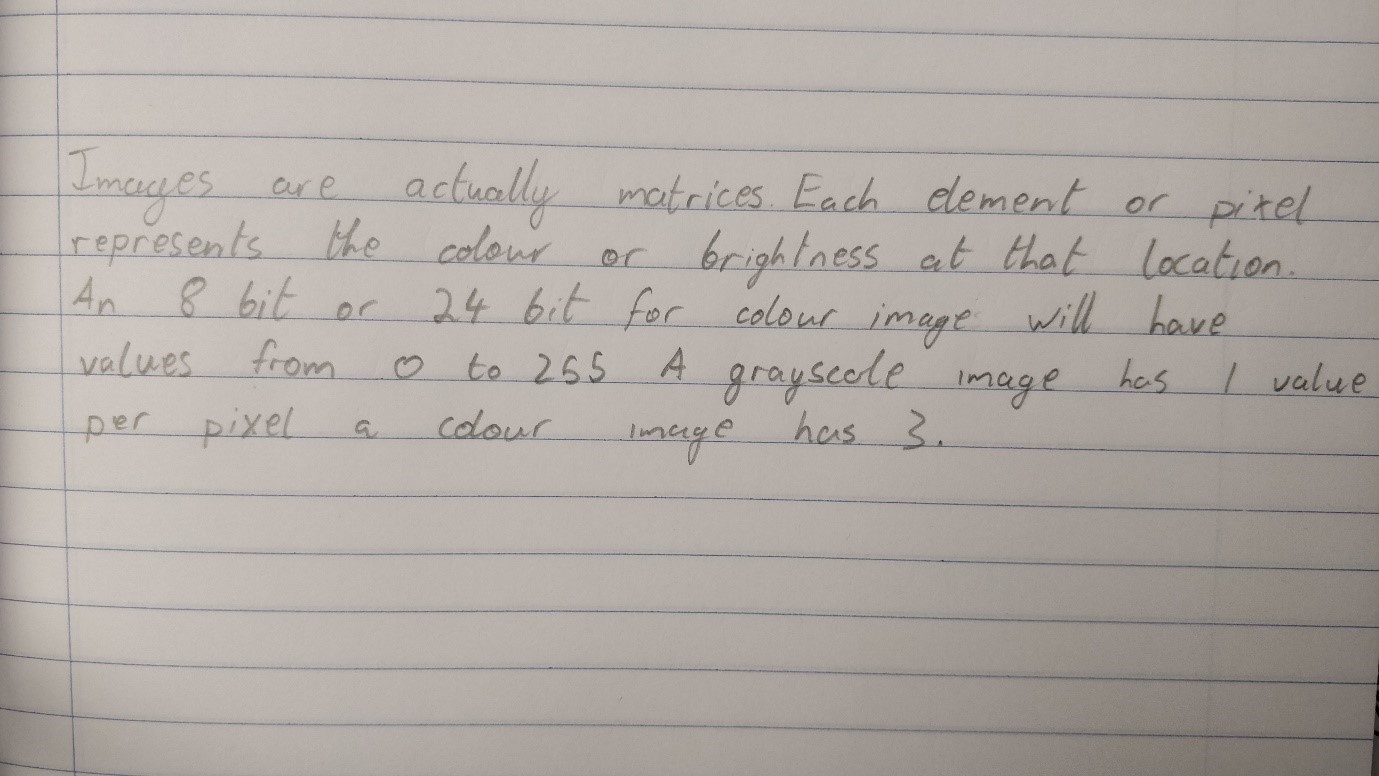 Images are actually matrices. Each element or pixel
represents the colour or brightness at that location.
An 8 bit or 24 bit for colour image will have
values from 0 to 255 A grayscale image has 1 value
per pixel a colour image has 3.